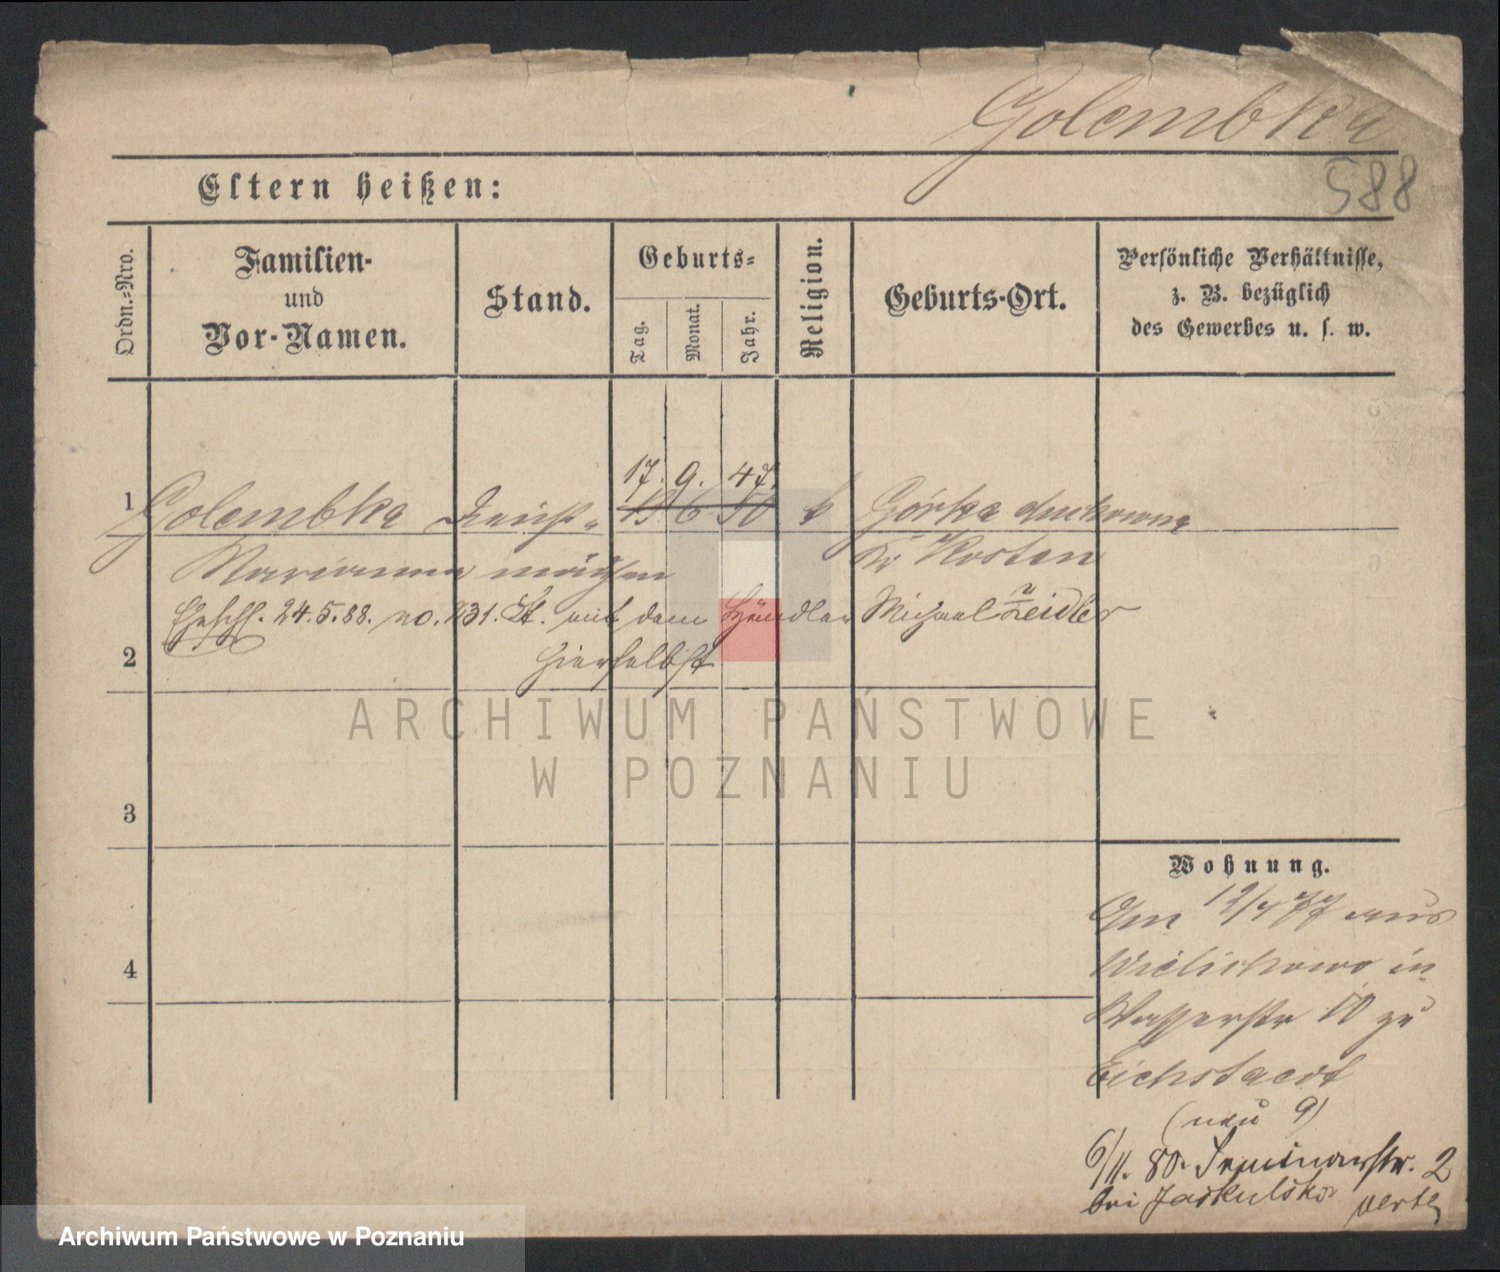 Golembka
588
Eltern heißen:
Ordn.-Nro.
Familien-
und
Vor-Namen.
Stand.
Geburts-
Tag.
Monat.
Jahr.
Religion.
Geburts-Ort.
Persönliche Verhältnisse,
z. B. bezüglich
des Gewerbes u. s. w.
17. 9. 47.
1 Golembka Dienst- 15 6 50 k Górka duchowna
Marianna mädchen Kr Kosten
Ehesch. 24.5.88. no. 231. St. mit dem Händler Michael Zeidler
2 hierselbst
3
4
Wohnung.
Am 12/4 77 aus
Wielichowo in
Wasserstr 10 zu
Eichstaedt
(neu 9)
6/11. 80. Seminarstr. 2
bei Jaskulska
ARCHIWUM PAŃSTWOWE
W POZNANIU
Archiwum Państwowe w Poznaniu